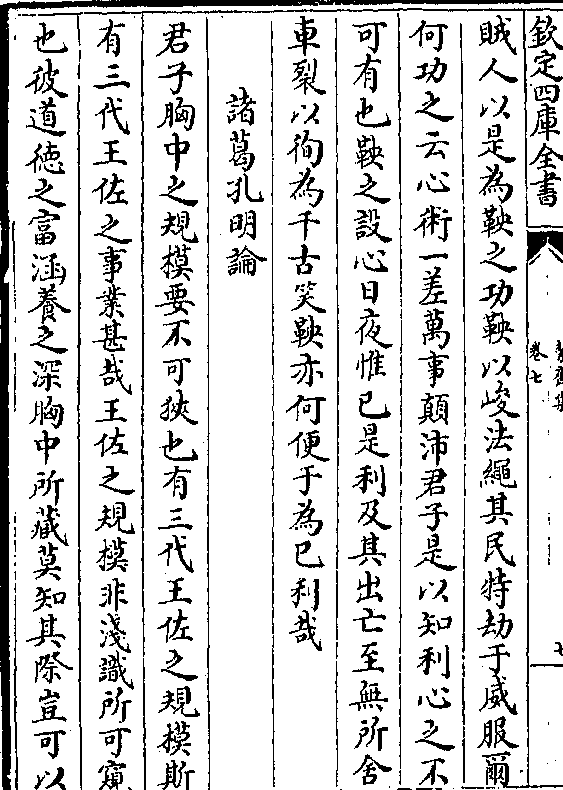 欽定四庫全書
卷七
七
賊人以是為鞅之功鞅以峻法繩其民特劫于威服爾
何功之云心術一差萬事顛沛君子是以知利心之不
可有也鞅之設心日夜惟已是利及其出亡至無所舍
車裂以徇為千古笑鞅亦何便于為已利哉
諸葛孔明論
君子胸中之規模要不可狹也有三代王佐之規模斯
有三代王佐之事業甚哉王佐之規模非淺識所可窺
也彼道德之富涵養之深胸中所藏莫知其際豈可以